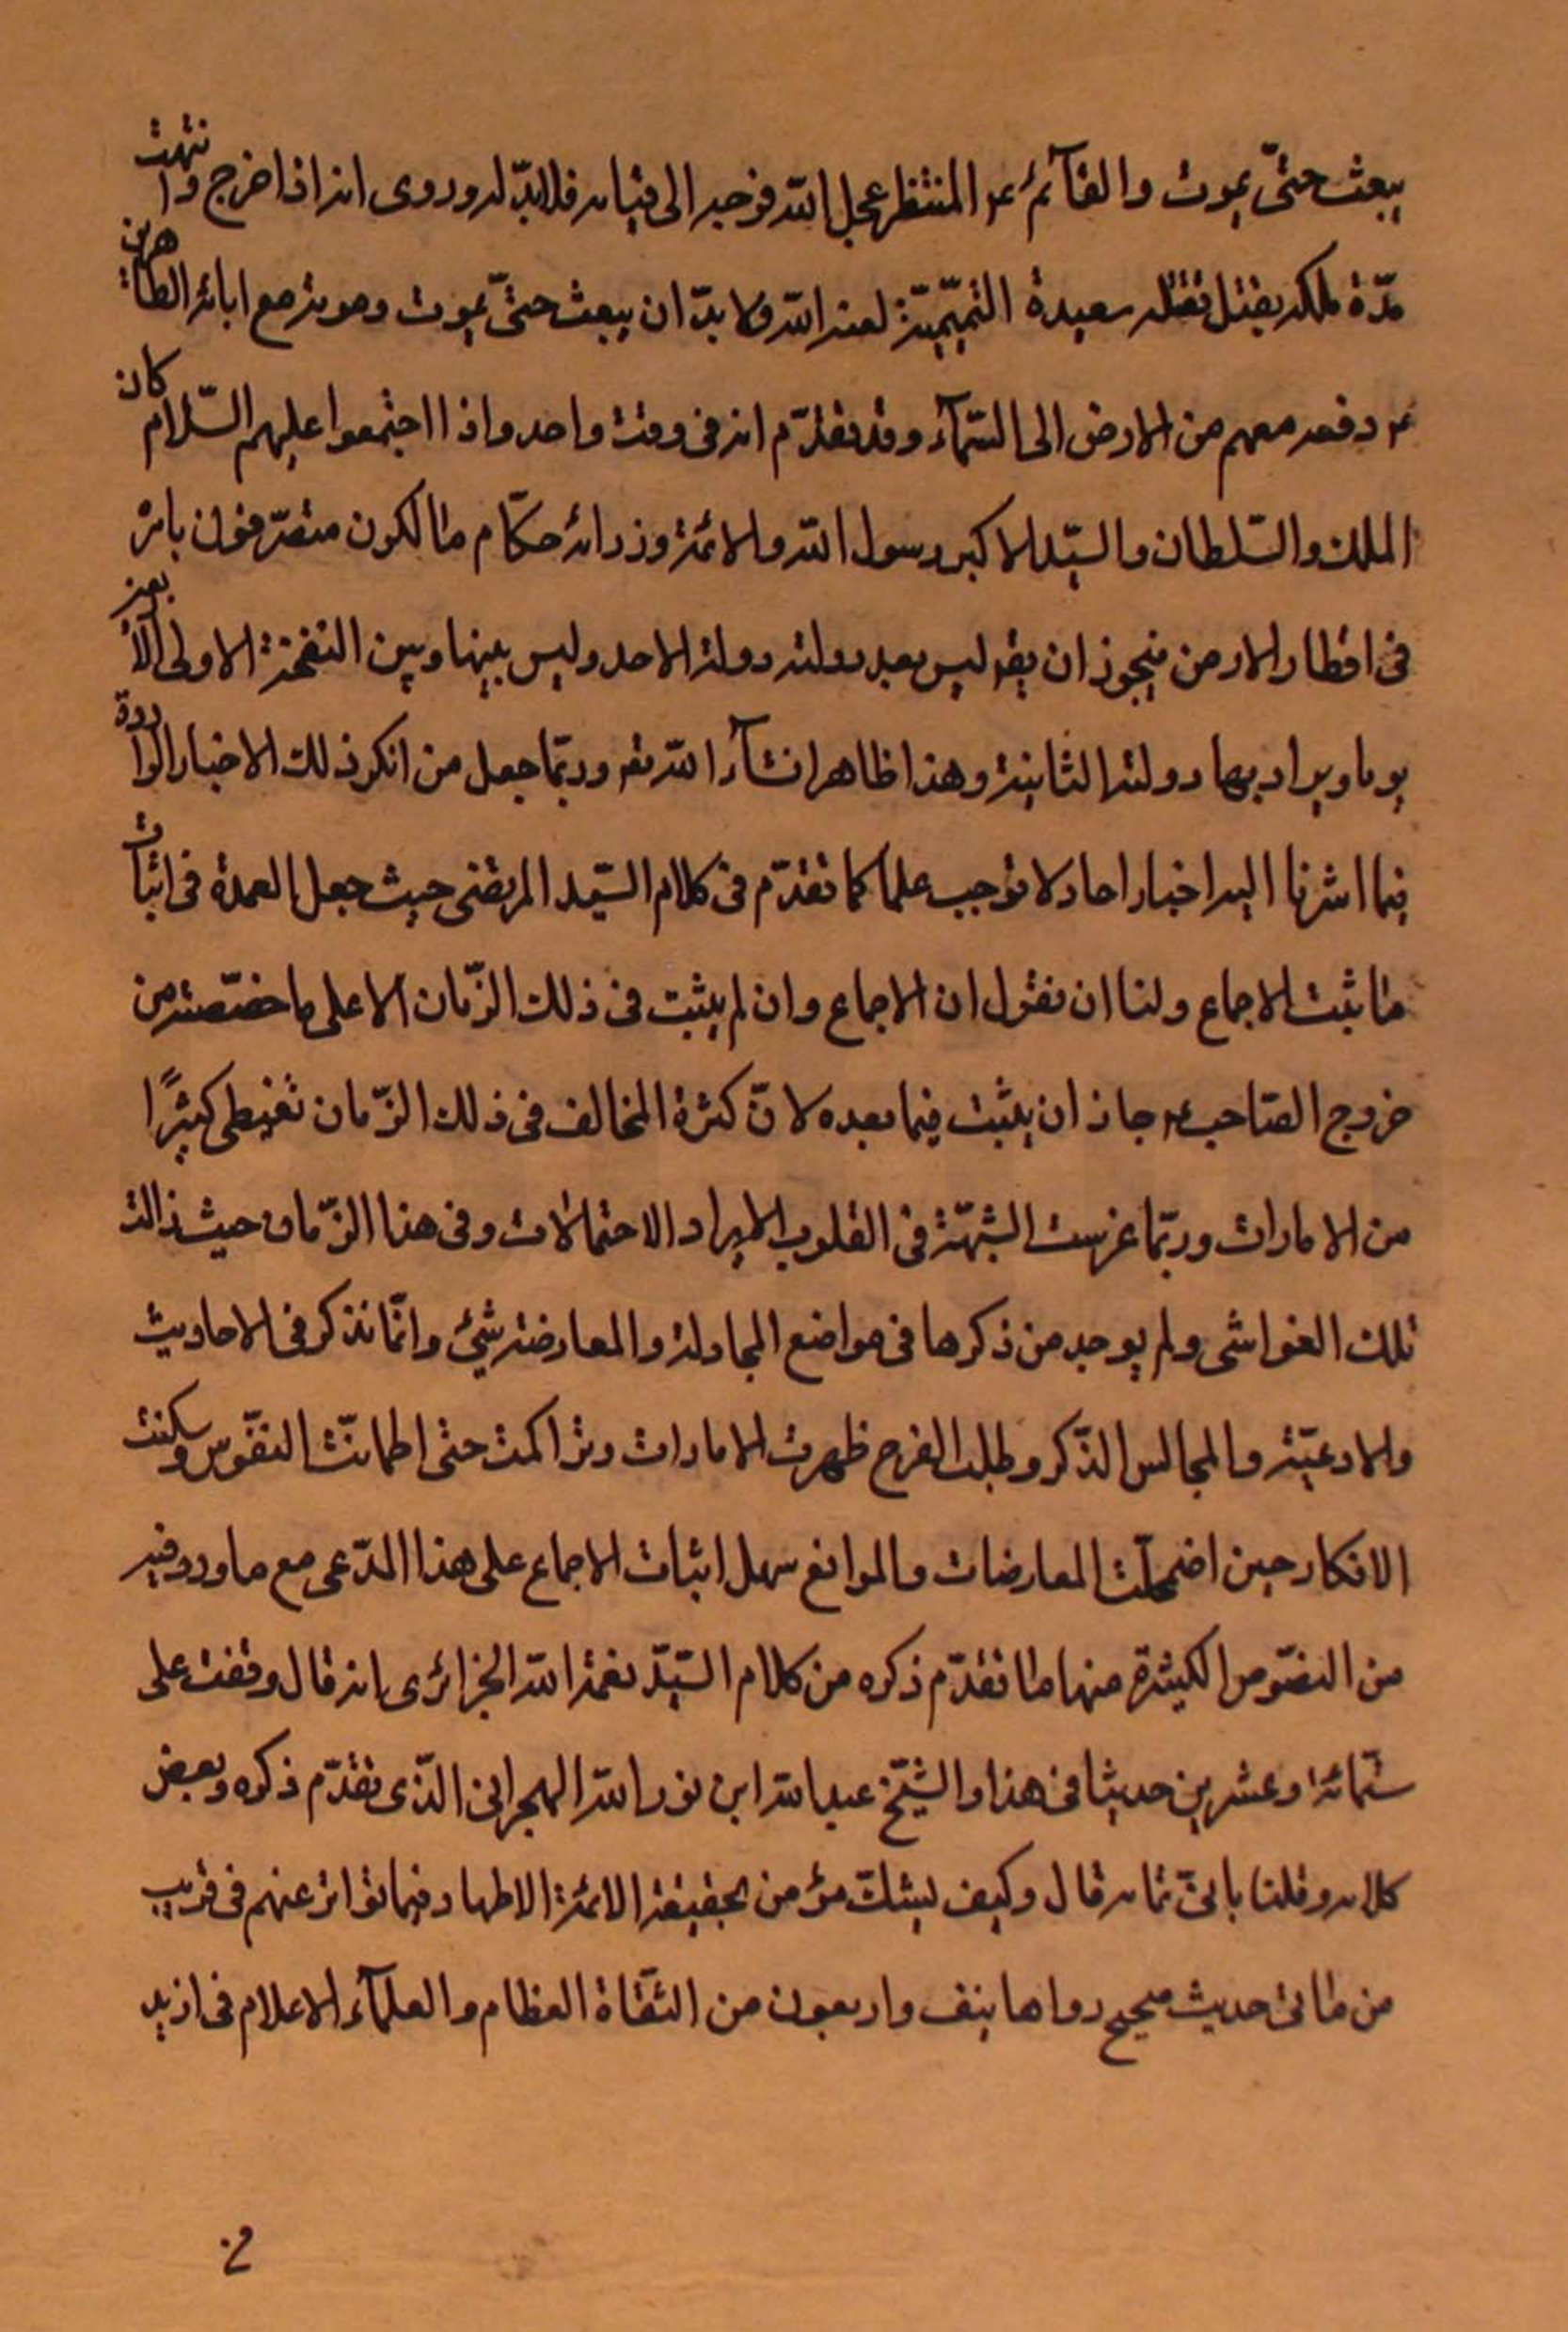 يبعث حتّى يموت والقآئم ع المنتظر عجل الله فرجه الى قيامه فلابدّ له وروى انه اذا خرج وانتهت
مدّة ملكه يقتل تقتله سعيدة التميميّة لعنه الله ولا بدّ ان يبعث حتّى يموت وموته مع ابائه الطاهرين
ع دفعه معهم من الارض الى السّمآء وقد تقدّم انه فى وقت واحد واذا اجتمعوا عليهم السّلام كان
الملك والسّلطان والسيّد الاكبر رسول الله والائمّة وزرائه حكّام مالكون متصرّفون بامره
فى اقطار الارض فيجوز ان يقو ليس بعد دولته دولة لاحد وليس بينها وبين النفخة الاولى الا اربعين
يوما ويراد بها دولته الثانية وهذا ظاهر انشآء الله تعو وربّما جعل من انكر ذلك الاخبار الواردة
فيما اشرنا اليه اخبار احاد لا توجب علما كما تقدّم فى كلام السيّد المرتضى حيث جعل العمدة فى اثبات
ما ثبت الاجماع ولنا ان نقول ان الاجماع وان لم يثبت فى ذلك الزّمان الا على ما خصّصه من
خروج الصّاحب ع جاز ان يثبت فيما بعده لانّ كثرة المخالف فى ذلك الزّمان تغطى كثيرًا
من الامارات وربّما غرست الشبهّة فى القلوب لايراد الاحتمالات وفى هذا الزّمان حيث زالت
تلك الغواشى ولم يوجد من ذكرها فى مواضع المجادلة والمعارضة شئ وانّما نذكر فى الاحاديث
والادعيّة والمجالس الذّكر وطلب الفرج ظهرت الامارات وتراكمت حتى اطمانّت النفّوس وسكنت
الافكار حين اضمحلّت المعارضات والموانع سهل اثبات الاجماع على هذا المدّعى مع ما ورد فيه
من النصّوص الكثيرة منها ما تقدّم ذكره من كلام السيّد نعمة الله الجزائرى انه قال وقفت على
ستّمائة وعشرين حديثا فى هذا والشيّخ عبد الله ابن نور الله البحرانى الذّى تقدّم ذكره وبعض
كلامه وقلنا ياتى تمامه قال وكيف يشكّ مؤمن بحقيقة الائمّة الاطهار فيما تواتر عنهم فى قريب
من مائى حديث صحيح رواها نيف واربعون من الثقّاة العظام والعلمآء الاعلام فى ازيد
من